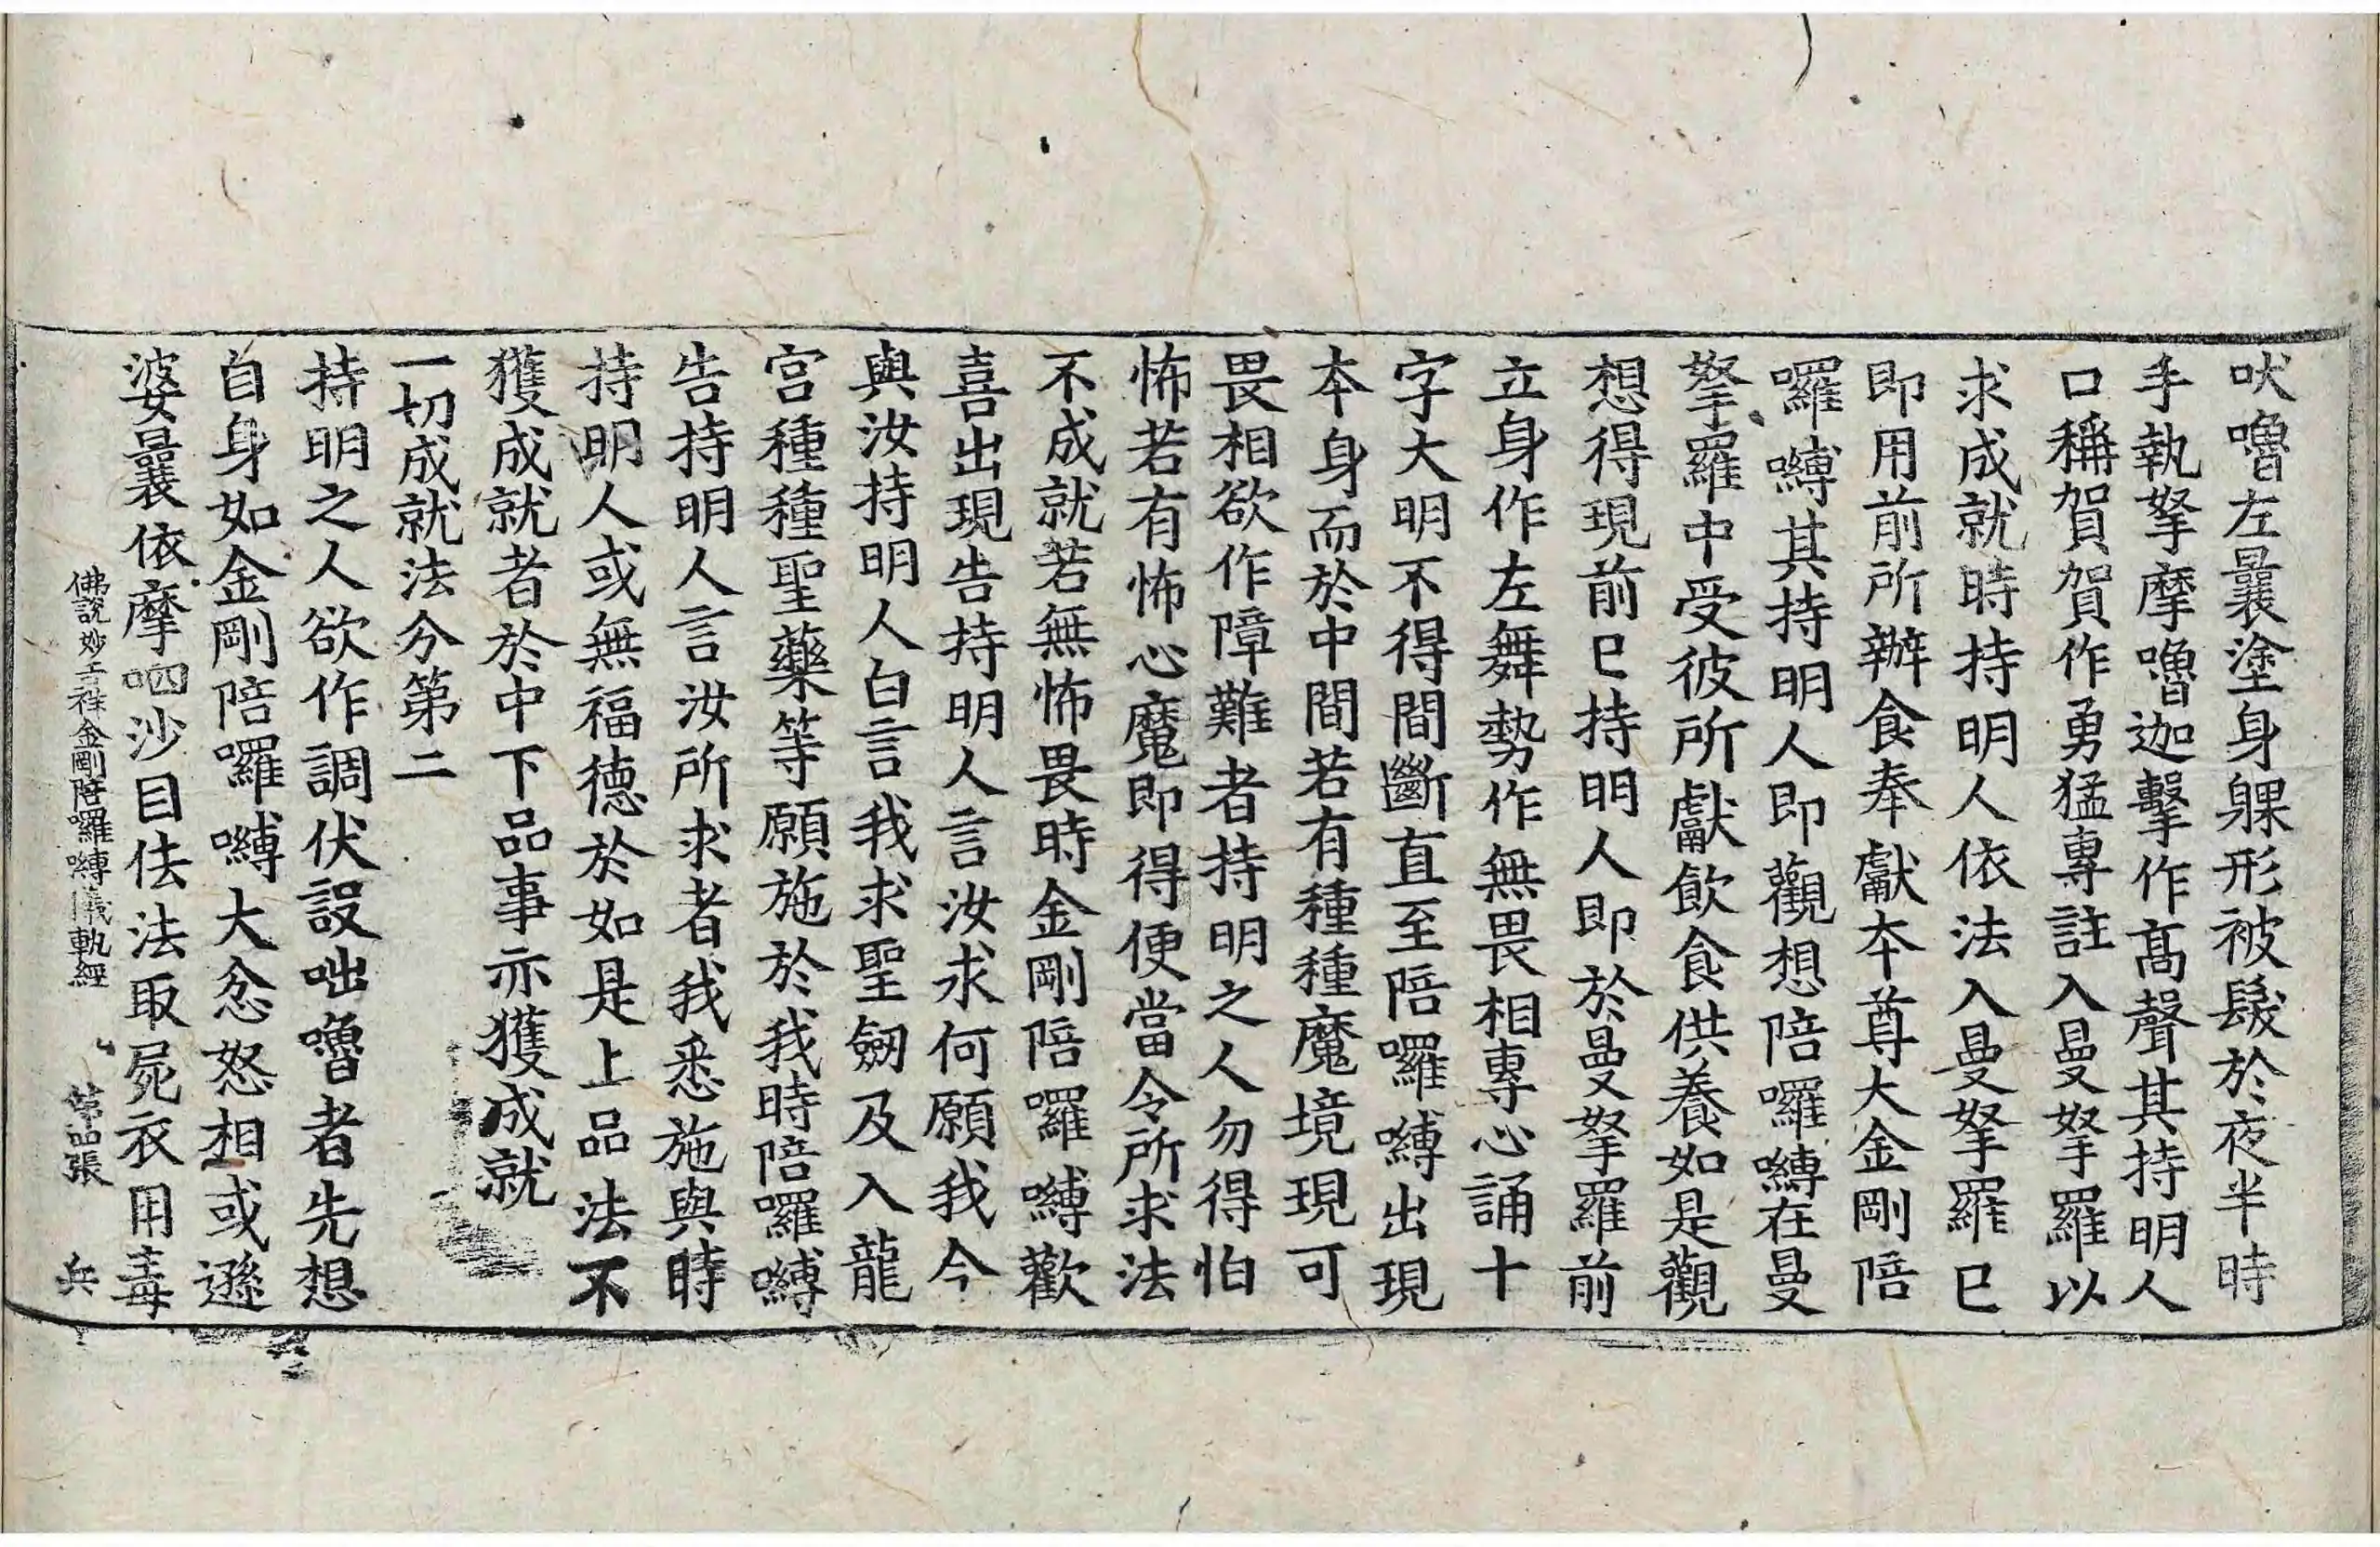 吠嚕左曩塗身躶形被髮於夜半時
手執拏摩嚕迦擊作髙聲其持明人
口稱賀賀作勇猛專註入曼拏羅以
求成就時持明人依法入曼拏羅已
即用前所辦食奉獻本尊大金剛陪
囉嚩其持明人即觀想陪囉嚩在曼
拏羅中受彼所獻飲食供養如是觀
想得現前已持明人即於曼拏羅前
立身作左舞勢作無畏相專心誦十
字大明不得間斷直至陪囉嚩出現
本身而於中間若有種種魔境現可
畏相欲作障難者持明之人勿得怕
怖若有怖心魔即得便當令所求法
不成就若無怖畏時金剛陪囉嚩歡
喜出現告持明人言汝求何願我今
與汝持明人白言我求聖劒及入龍
宮種種聖藥等願施於我時陪囉嚩
告持明人言汝所求者我悉施與時
持明人或無福德於如是上品法不
獲成就者於中下品事亦獲成就
一切成就法分第二
持明之人欲作調伏設咄嚕者先想
自身如金剛陪囉嚩大忿怒相或遜
婆曩依摩呬沙目佉法取屍衣用毒
佛說妙吉祥金剛陪囉嚩儀軌經 第四張 兵